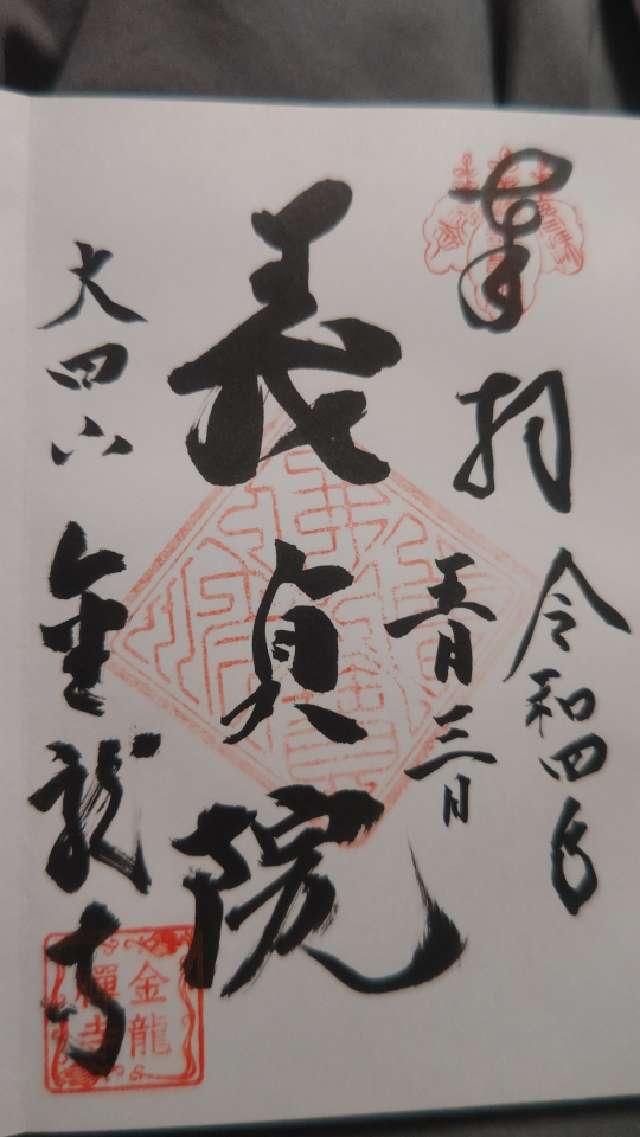 奉拝
令和四年
五月三日
義貞院
大田山
金龍寺
金龍
禪寺